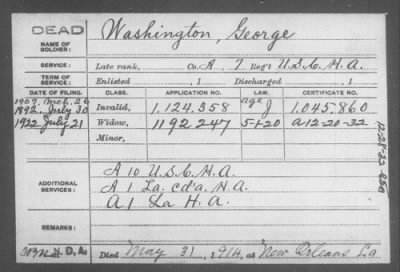 DEAD
NAME OF SOLDIER:
Washington, George
SERVICE:
Late rank, Co. A 7 Reg't U.S.C.H.A.
TERM OF SERVICE:
Enlisted , 1 Discharged , 1
DATE OF FILING. CLASS. APPLICATION NO. LAW. CERTIFICATE NO.
1907. Mch. 26 age
1892. July 30 Invalid, 1.124.358 J 1.045.860
1922 July 21 Widow, 1192247 5-1-20 A 12-20-32
Minor,
12-28-32
ADDITIONAL SERVICES:
A 10 U.S.C.H.A.
A 1 La. Cd'a. H.A.
A 1 La H.A.
REMARKS:
N.D.A.
Died May 31, 1914, at New Orleans La